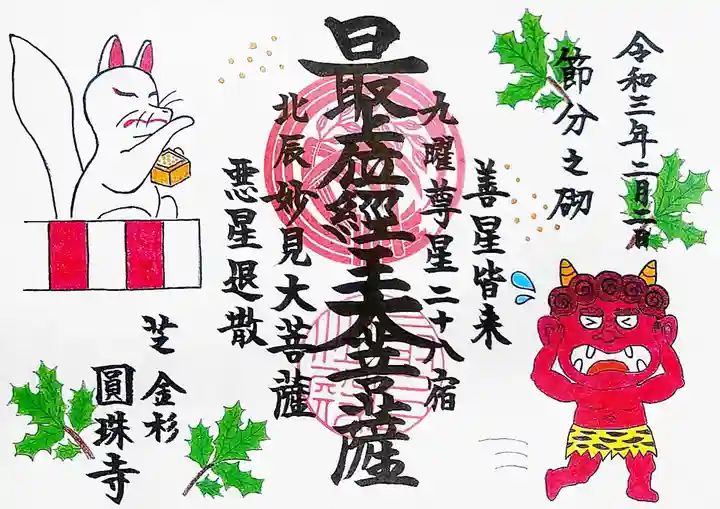 令和三年二月二日
節分之砌
善星皆来
九曜尊星二十八宿
最上位経王大菩薩
北辰妙見大菩薩
悪星退散
芝金杉
圓珠寺